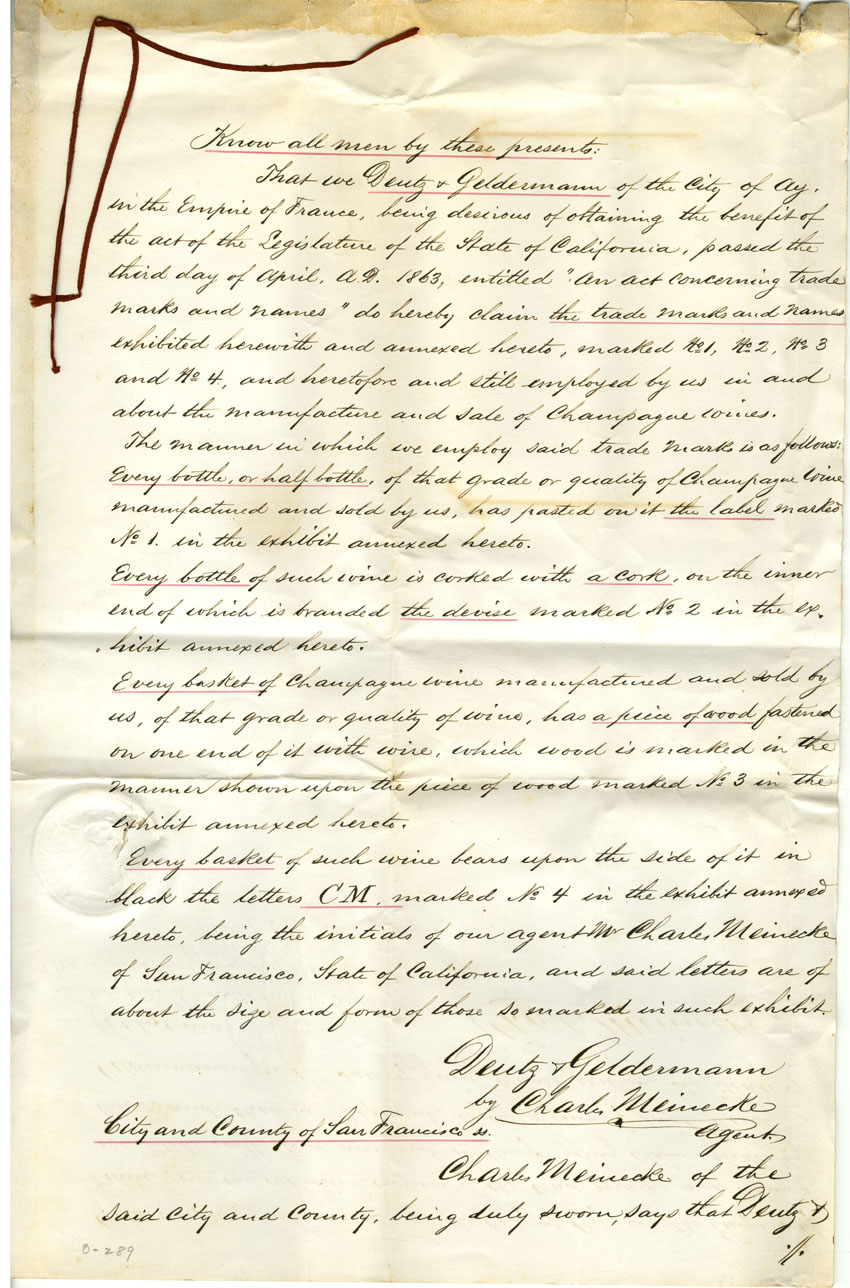 Know all men by these presents:
That we Deutz & Geldermann of the City of Ay,
in the Empire of France, being desirous of obtaining the benefit of
the act of the Legislature of the State of California, passed the
third day of April, A.D. 1863, entitled "An act concerning trade
marks and names" do hereby claim the trade marks and names
exhibited herewith and annexed hereto, marked No 1, No 2, No 3
and No 4, and heretofore and still employed by us in and
about the manufacture and sale of Champagne wines.
The manner in which we employ said trade marks is as follows:
Every bottle, or half bottle, of that grade or quality of Champagne Wine
manufactured and sold by us, has pasted on it the label marked
No 1. in the exhibit annexed hereto.
Every bottle of such wine is corked with a cork, on the inner
end of which is branded the devise marked No 2 in the ex-
hibit annexed hereto.
Every basket of Champagne wine manufactured and sold by
us, of that grade or quality of wine, has a piece of wood fastened
on one end of it with wire, which wood is marked in the
manner shown upon the piece of wood marked No 3 in the
exhibit annexed hereto.
Every basket of such wine bears upon the side of it in
black the letters CM, marked No 4 in the exhibit annexed
hereto, being the initials of our agent Mr Charles Meinecke
of San Francisco, State of California, and said letters are of
about the size and form of those so marked in such exhibit.
Deutz & Geldermann
by Charles Meinecke
Agent
City and County of San Francisco ss.
Charles Meinecke of the
said City and County, being duly sworn, says that Deutz &
./.
0-289